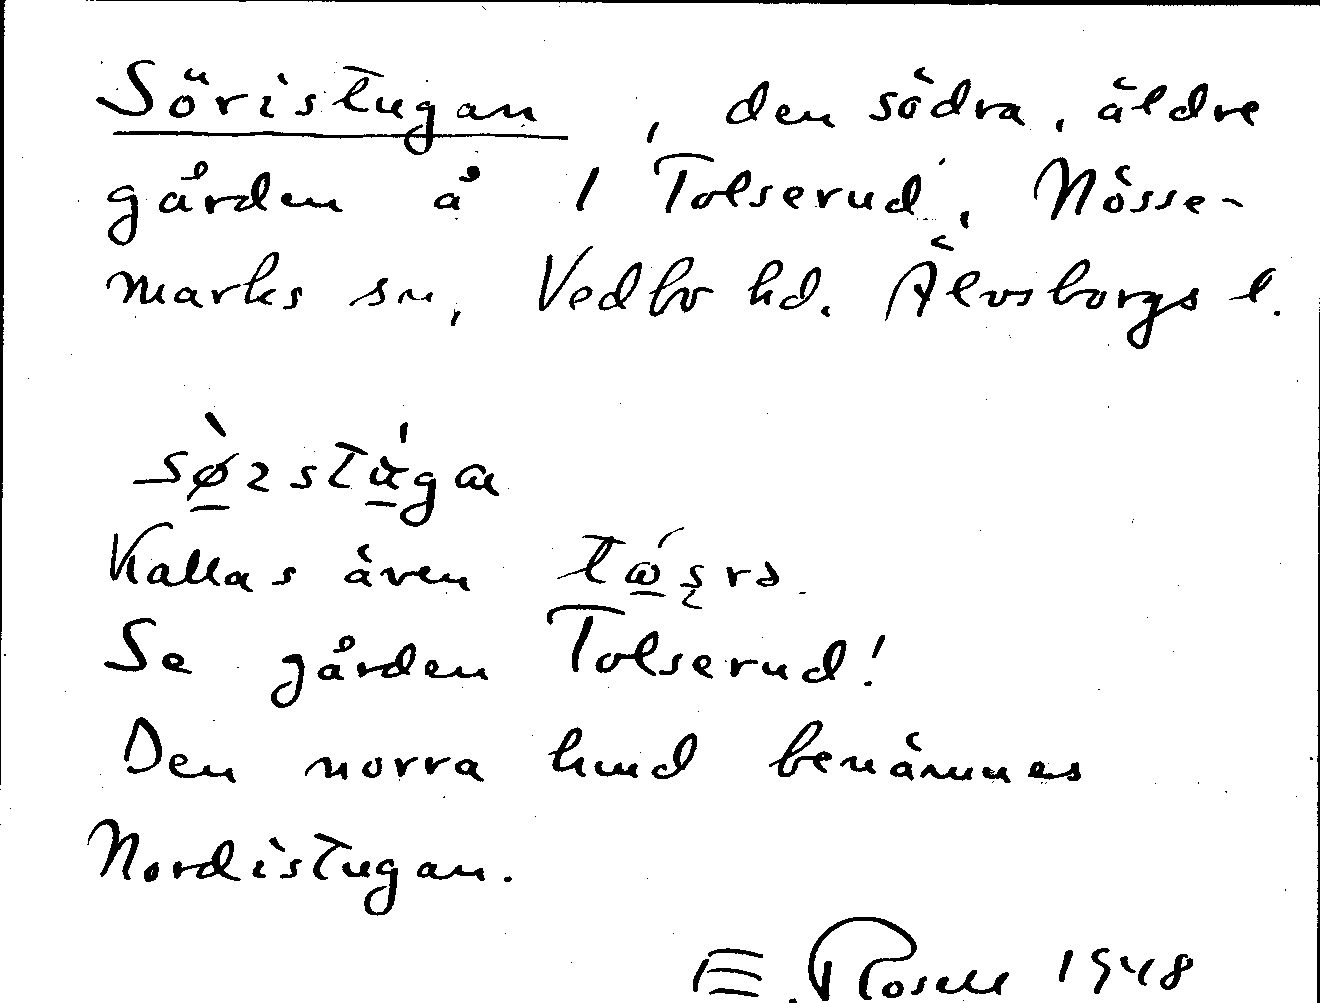 Söristugan, den södra, äldre
gården å 1 Tolserud, Nösse-
marks sn, Vedbo hd. Älvsborgs l.
Kallas även
Se gården Tolserud!
Den norra hmd benämnes
Nordistugan.
E. Rosell 1948